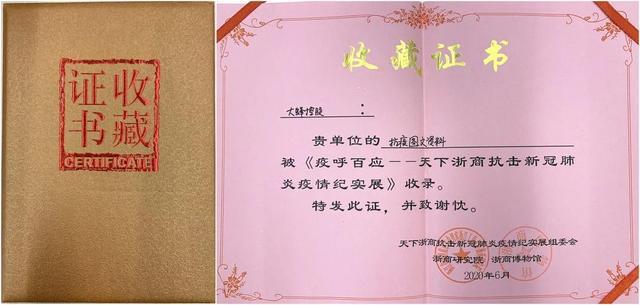 收藏
证书
CERTIFICATE
收藏证书
贵单位的 抗疫图文资料
被《疫呼百应——天下浙商抗击新冠肺
炎疫情纪实展》收录。
特发此证，并致谢忱。
天下浙商抗击新冠肺炎疫情纪实展组委会
浙商研究院 浙商博物馆
2020年6月